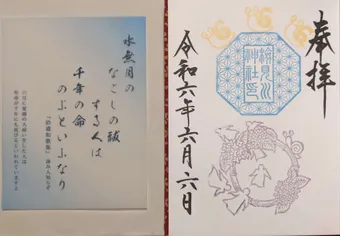 水無月の
なごしの祓
する人は
千年の命
のぶといふなり
『拾遺和歌集』 詠み人知らず
奉拝
検見川
神社之印
令和六年六月六日